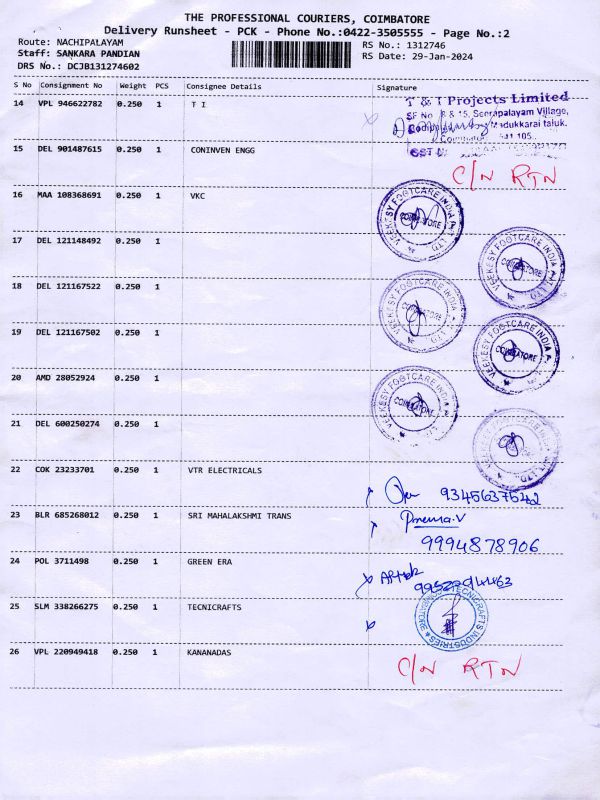 THE PROFESSIONAL COURIERS, COIMBATORE
Delivery Runsheet - PCK - Phone No.:0422-3505555 - Page No.:2
Route: NACHIPALAYAM
RS No.: 1312746
Staff: SANKARA PANDIAN
RS Date: 29-Jan-2024
DRS No.: DCJB131274602
S No Consignment No Weight PCS Consignee Details Signature
14 VPL 946622782 0.250 1 T I
T & I Projects Limited
SF No 8 & 15, Seerapalayam Village,
Madukkarai taluk.
15 DEL 901487615 0.250 1 CONINVEN ENGG
C/N RTN
16 MAA 108368691 0.250 1 VKC
VEEKESY FOOTCARE INDIA PVT LTD. COIMBATORE
17 DEL 121148492 0.250 1
VEEKESY FOOTCARE INDIA PVT LTD. COIMBATORE
18 DEL 121167522 0.250 1
VEEKESY FOOTCARE INDIA COIMBATORE
19 DEL 121167502 0.250 1
VEEKESY FOOTCARE INDIA COIMBATORE
20 AMD 28052924 0.250 1
VEEKESY FOOTCARE INDIA COIMBATORE
21 DEL 600250274 0.250 1
VEEKESY FOOTCARE INDIA
22 COK 23233701 0.250 1 VTR ELECTRICALS
9345637542
23 BLR 685268012 0.250 1 SRI MAHALAKSHMI TRANS
Prema.V
9994878906
24 POL 3711498 0.250 1 GREEN ERA
25 SLM 338266275 0.250 1 TECNICRAFTS
TECNICRAFTS INDUSTRIES COIMBATORE
26 VPL 220949418 0.250 1 KANANADAS
C/N RTN